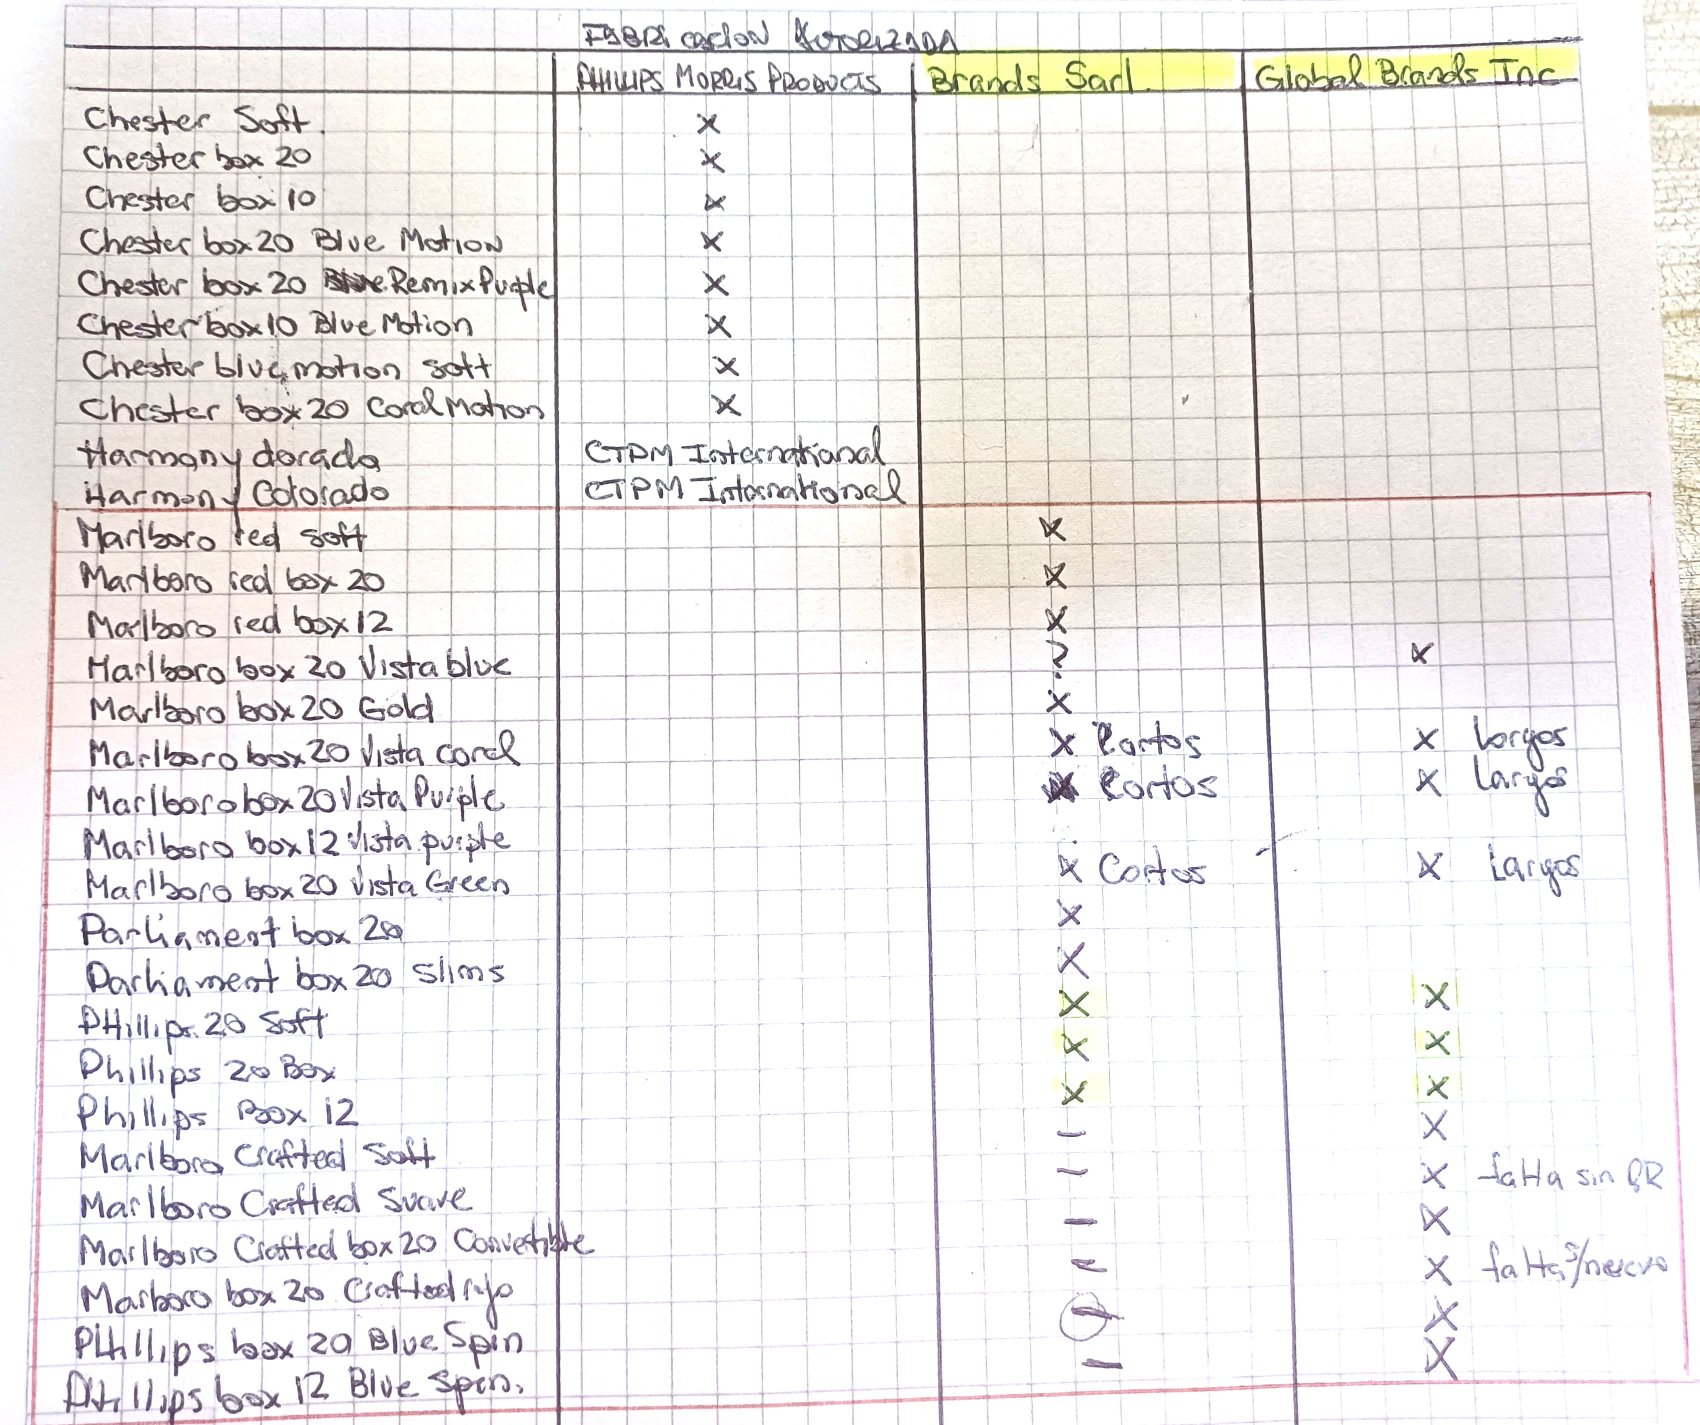 FABRICACION AUTORIZADA
PHILLIPS MORRIS PRODUCTS Brands Sarl. Global Brands Inc
Chester Soft. X
Chester box 20 X
Chester box 10 X
Chester box 20 Blue Motion X
Chester box 20 Remix Purple X
Chester box 10 Blue Motion X
Chester blue motion soft X
Chester box 20 Coral Motion X
Harmony dorado CTPM International
Harmony Colorado CTPM International
Marlboro red soft X
Marlboro red box 20 X
Marlboro red box 12 X
Marlboro box 20 Vista blue ? X
Marlboro box 20 Gold X
Marlboro box 20 Vista coral X Cortos X largos
Marlboro box 20 Vista Purple X Cortos X Largos
Marlboro box 12 Vista purple
Marlboro box 20 Vista Green X Cortos X Largos
Parliament box 20 X
Parliament box 20 Slims X
PHillips 20 Soft X X
Phillips 20 Box X X
Phillips Box 12 X X
Marlboro Crafted Soft - X
Marlboro Crafted Suave - X falta sin QR
Marlboro Crafted box 20 Convertible - X
Marlboro box 20 Crafted rojo - X falta s/nuevo
PHillips box 20 Blue Spin - X
PHillips box 12 Blue Spin. - X